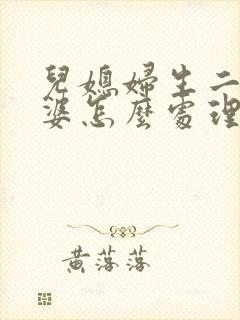 兒媳婦生二
婆怎麼處理
黃落落